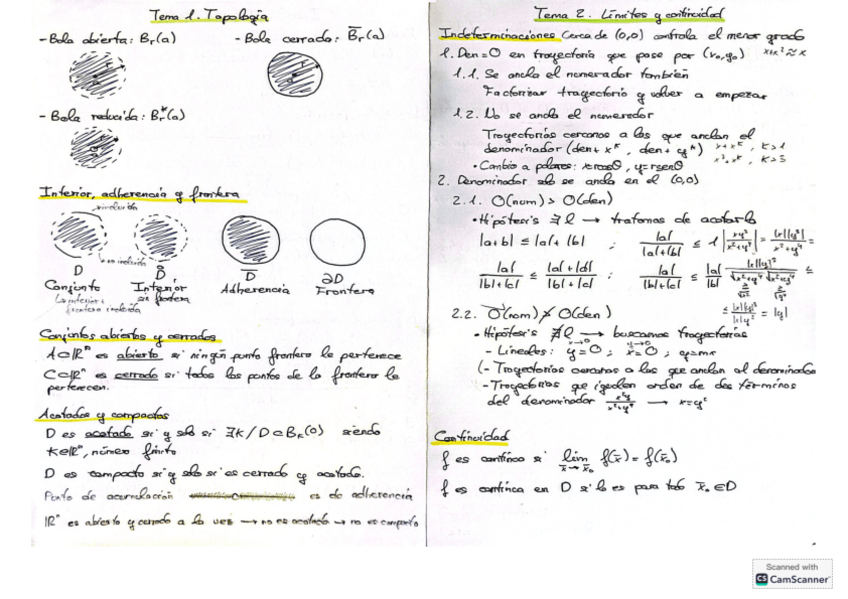 Tema 1. Topología
- Bola abierta: Br(a)
- Bola cerrada: B̅r(a)
- Bola reducida: Br*(a)
Interior, adherencia y frontera
no incluida
D
Conjunto
D̊
Interior
sin frontera
D̅
Adherencia
∂D
Frontera
frontera incluida
Conjuntos abiertos y cerrados
A⊂ℝⁿ es abierto si ningún punto frontera le pertenece
C⊂ℝⁿ es cerrado si todos los puntos de la frontera le
pertenecen.
Acotados y compactos
D es acotado si y solo si ∃K/D⊂Bₖ(0) siendo
K∈ℝⁿ, número finito
D es compacto si y solo si es cerrado y acotado.
Punto de acumulación es de adherencia
ℝⁿ es abierto y cerrado a la vez → no es acotado → no es compacto
Tema 2. Límites y continuidad
Indeterminaciones Cerca de (0,0) controla el menor grado
x+x² ≈ x
1. Den=0 en trayectoria que pase por (x₀,y₀)
1.1. Se anula el numerador también
Factorizar trayectoria y volver a empezar
1.2. No se anula el numerador
Trayectorias cercanas a las que anulan el
denominador (den+xᵏ, den+yᵏ)
• Cambio a polares: x=rcosθ, y=rsenθ
2. Denominador solo se anula en el (0,0)
2.1. O(num) > O(den)
• Hipótesis ∃l → tratamos de acotarlo
|a+b| ≤ |a|+|b| ; |a|/(|a|+|b|) ≤ 1
|a|/(|b|+|c|) ≤ (|a|+|d|)/(|b|+|c|) ; |a|/(|b|+|c|) ≤ |a|/|b|
2.2. O(num) ≯ O(den)
• Hipótesis ∄l → buscamos trayectorias
- Lineales: y=0 ; x=0 ; y=mx
(- Trayectorias cercanas a las que anulan al denominador
- Trayectorias que igualen orden de dos términos
del denominador x²y/(x²+y⁴) → x=y²
Continuidad
f es continua si lim x̅→x̅₀ f(x̅)=f(x̅₀)
f es continua en D si lo es para todo x̅₀∈D
Scanned with
CS CamScanner